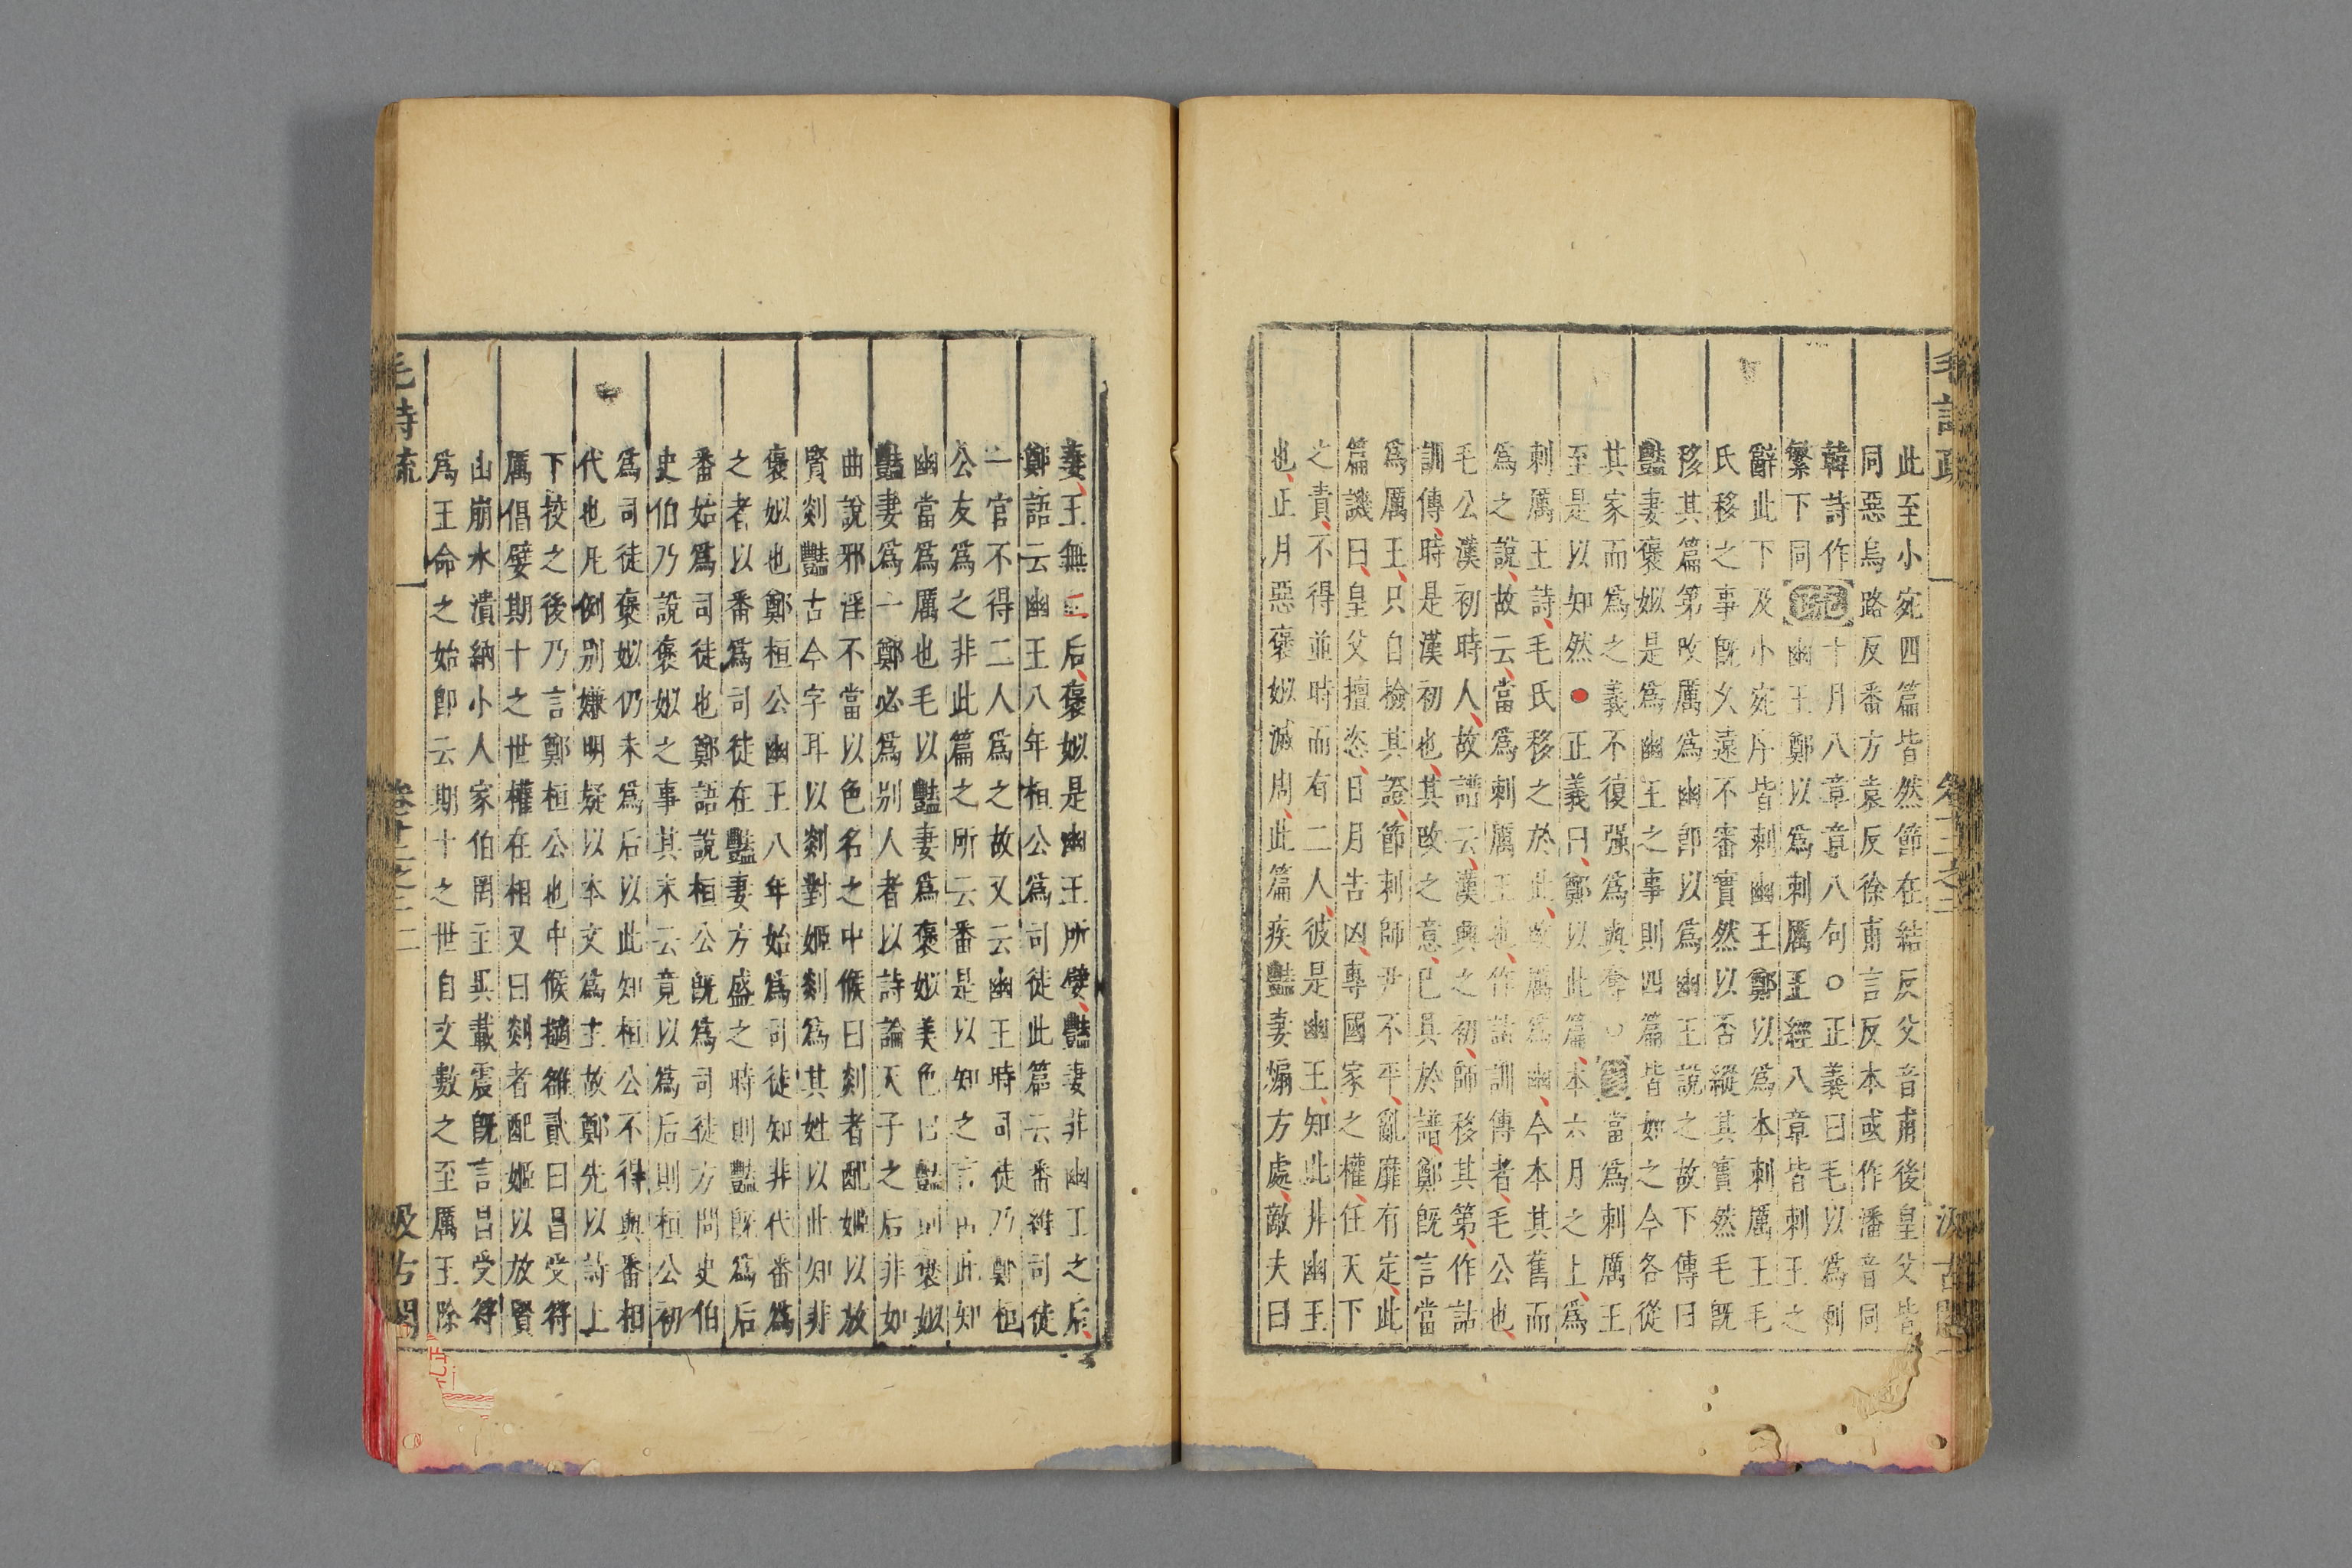 毛詩疏 卷十二之二 汲古閣
此至小宛四篇皆然節在結反父音甫後皇父皆
同惡烏路反番方袁反徐甫言反本或作潘音同
韓詩作
繁下同 疏 十月八章章八句○正義曰毛以為刺
幽王鄭以為刺厲王經八章皆刺王之
辭此下及小宛序皆刺幽王鄭以為本刺厲王毛
氏移之事既久遠不審實然以否縱其實然毛既
移其篇第改厲為幽即以為幽王說之故下傳曰
豔妻褒姒是為幽王之事則四篇皆如之今各從
其家而為之義不復强為與奪○ 當為刺厲王
至是以知然●正義曰鄭以此篇本六月之上為
刺厲王詩毛氏移之於此改厲為幽今本其舊而
為之說故云當為刺厲王也作詁訓傳者毛公也
毛公漢初時人故譜云漢興之初師移其第作詁
訓傳時是漢初也其改之意已具於譜鄭既言當
為厲王只自檢其證節刺師尹不平亂靡有定此
篇譏曰皇父擅恣日月告凶專國家之權任天下
之責不得並時而有二人彼是幽王知此并幽王
也正月惡褒姒滅周此篇疾豔妻煽方處敵夫曰
妻王無二后褒姒是幽王所嬖豔妻非幽王之后
鄭語云幽王八年桓公為司徒此篇云番維司徒
一官不得二人為之故又云幽王時司徒乃鄭桓
公友為之非此篇之所云番是以知之言由此知
幽當為厲也毛以豔妻為褒姒美色曰豔則褒姒
豔妻為一鄭必為別人者以詩論天子之后非如
曲說邪淫不當以色名之中候曰剡者配姬以放
賢剡豔古今字耳以剡對姬剡為其姓以此知非
褒姒也鄭桓公幽王八年始為司徒知非代番為
之者以番為司徒在豔妻方盛之時則豔既為后
番始為司徒也鄭語說桓公既為司徒方問史伯
史伯乃說褒姒之事其末云竟以為后則桓公初
為司徒褒姒仍未為后以此知桓公不得與番相
代也凡例別嫌明疑以本文為主故鄭先以詩上
下挍之後乃言鄭桓公也中候擿雒貳曰昌受符
厲倡嬖期十之世權在相又曰剡者配姬以放賢
山崩水潰納小人家伯罔主異載震既言昌受符
為王命之始即云期十之世自文數之至厲王除
毛詩疏 卷十二之二 二 汲古閣